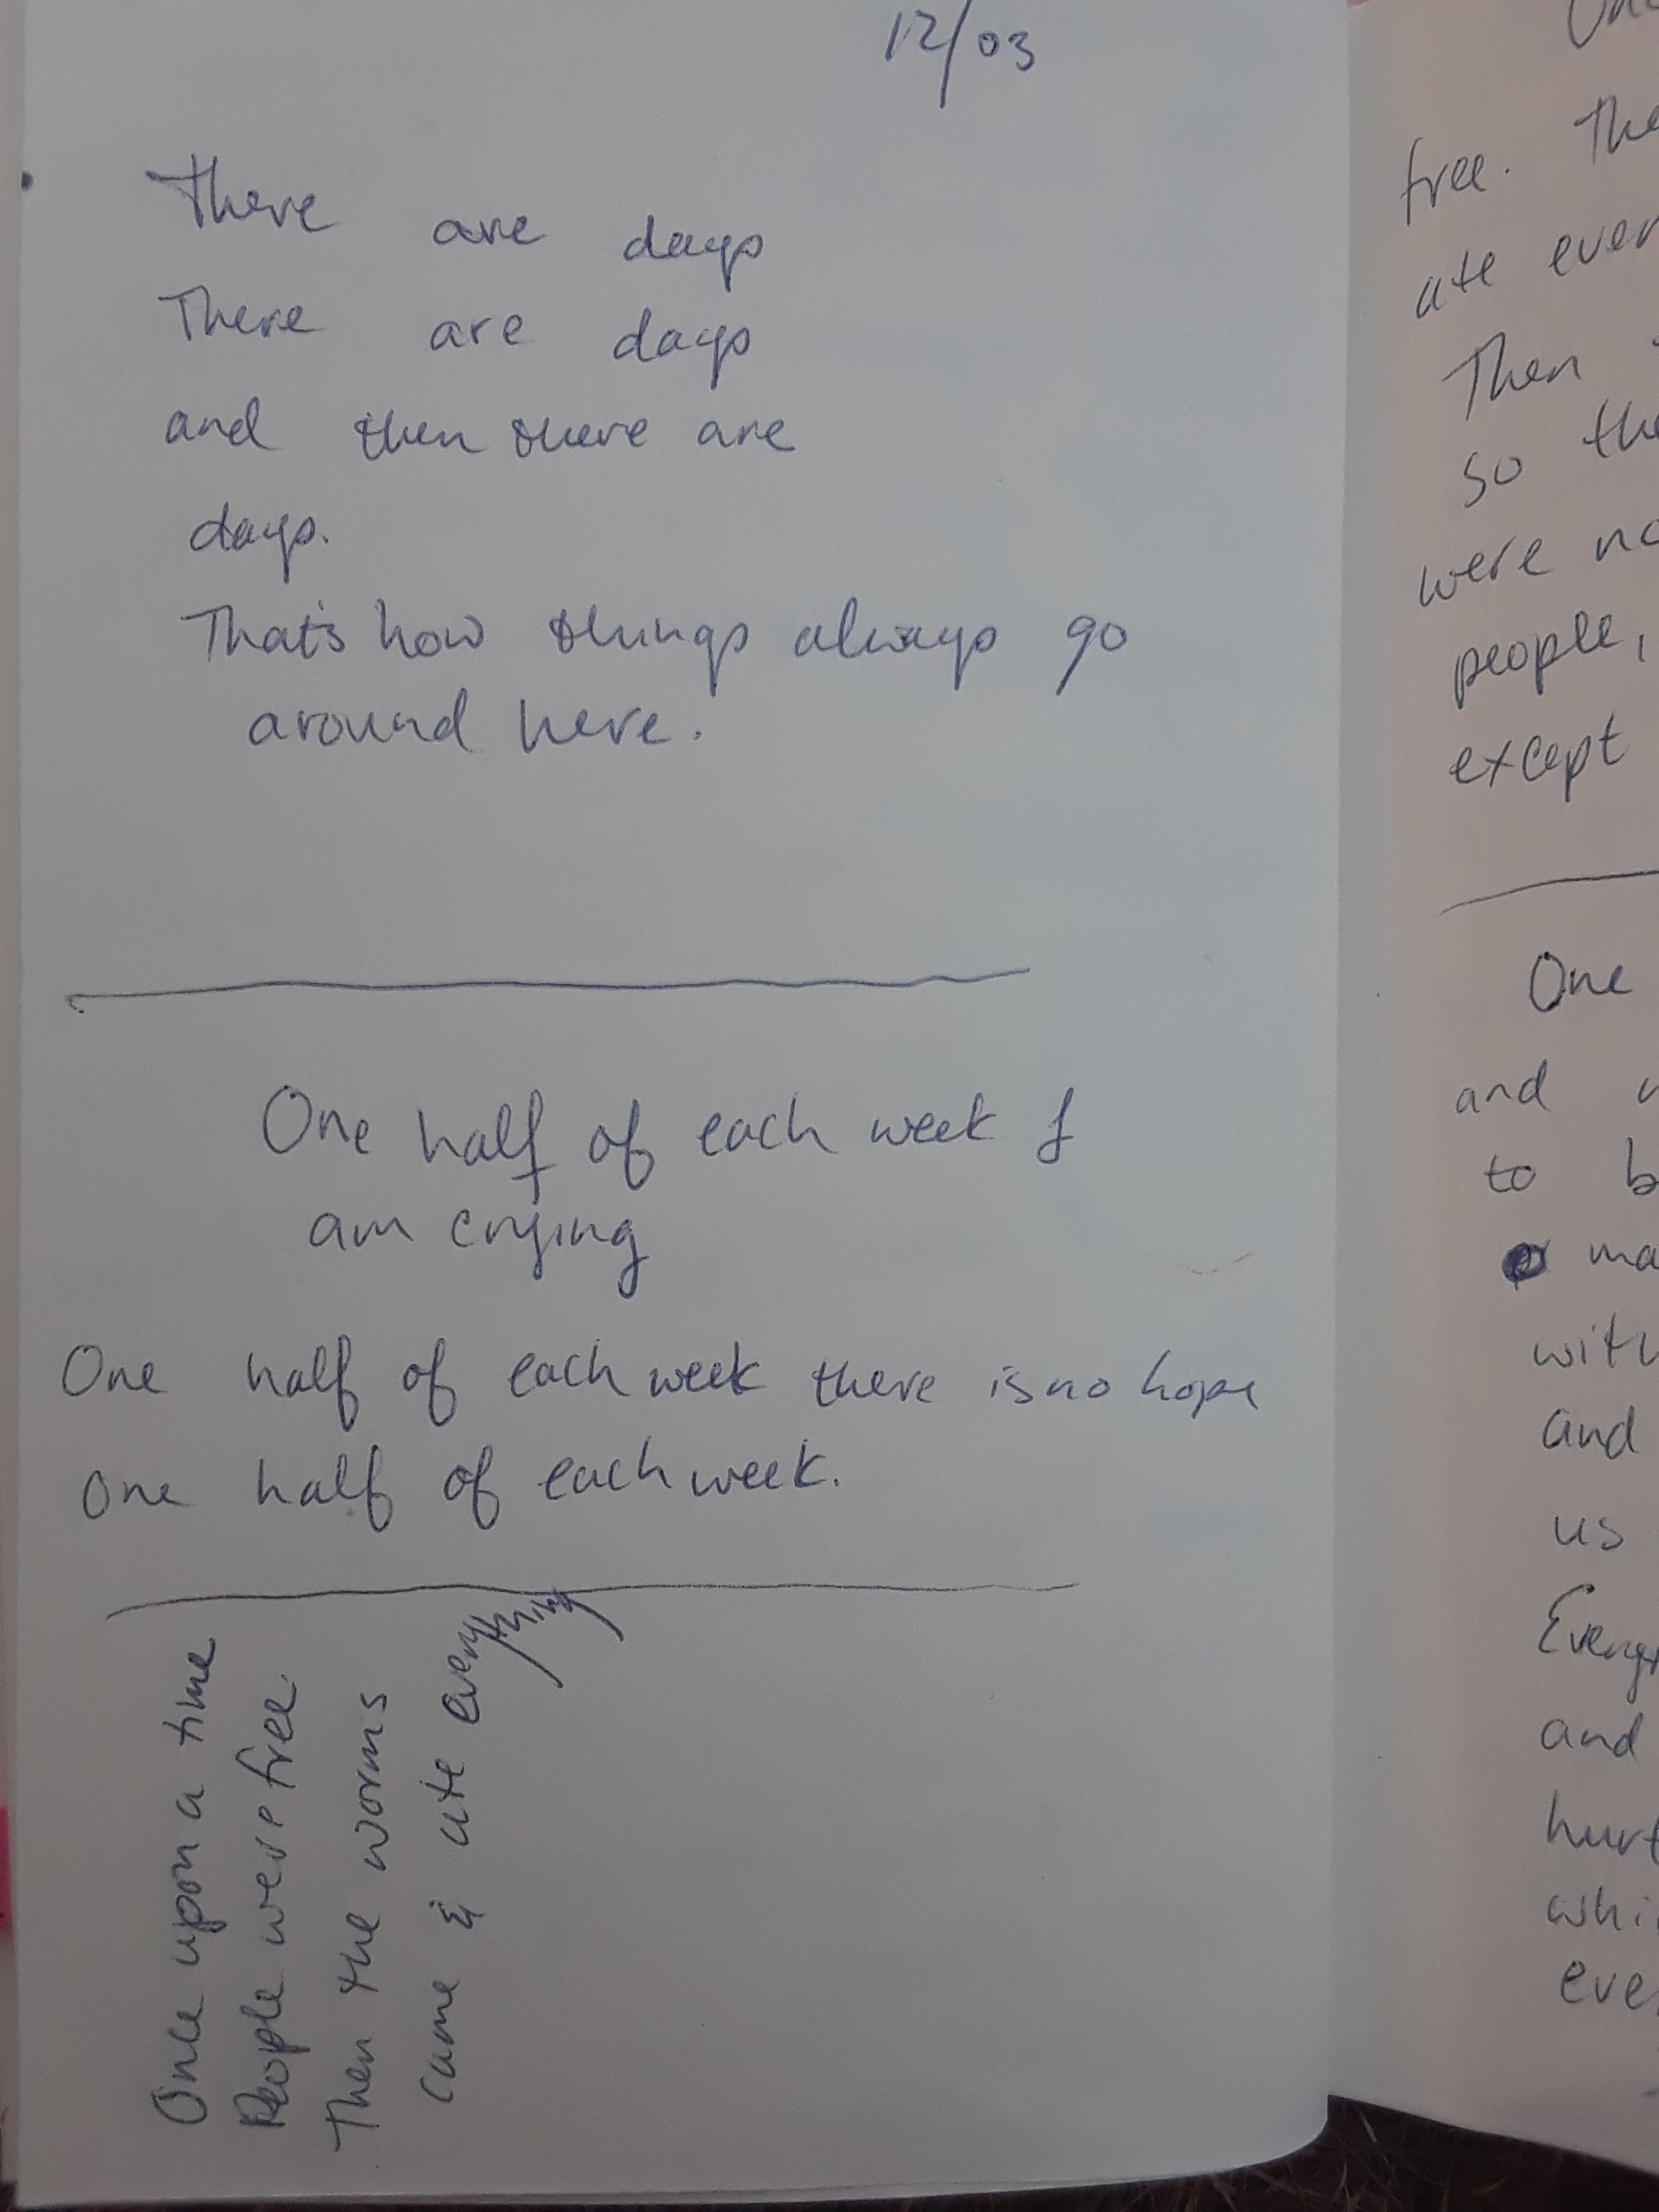 12/03
There are days
There are days
and then there are
days.
That's how things always go
around here.
One half of each week I
am crying
One half of each week there is no hope
One half of each week.
Once upon a time
People were free.
Then the worms
came & ate everything
free. The
ate ever
Then
so the
were no
people,
except
One
and
to b
ma
with
and
us
Everyt
and
hurt
whi
eve